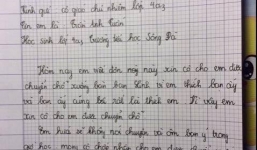 Kính gửi cô giáo chủ nhiệm lớp 4a3
Tên em là Trần tiến
Học sinh lớp 4a3 Trường tiểu học Sông Đà
Hôm nay em viết đơn này xin cô cho em được
chuyển chỗ xuống bàn bạn Linh vì em thích bạn ấy
và bạn ấy cũng rất thích em. Vì vậy em
xin cô cho em được chuyển chỗ
Em hứa sẽ không nói chuyện với bạn ý trong
giờ học mong cô chấp nhận cho em được